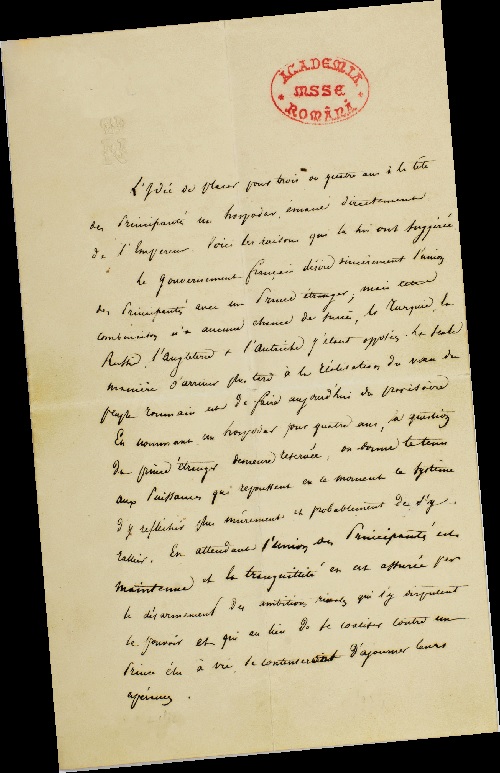 ACADEMIA
MSSE
ROMÂNĂ
L'Idée de placer pour trois ou quatre ans à la tête
des Principautés un hospodar émané directement
de l'Empereur. Voici les raisons qui la lui ont suggérée
Le Gouvernement français désire sincèrement l'union
des Principautés avec un Prince étranger; mais cette
combinaison n'a aucune chance de succès, la Turquie, la
Russie, l'Angleterre & l'Autriche s'étant opposées. La seule
manière d'arriver plus tard à la réalisation du vœu du
peuple roumain est de faire aujourd'hui du provisoire
En nommant un hospodar pour quatre ans, la question
du prince étranger demeure réservée, on donne le tems
aux Puissances qui repoussent en ce moment ce système
d'y réfléchir plus mûrement et probablement de s'y
rallier. En attendant l'union des Principautés est
maintenue et la tranquillité en est assurée par
le désarmement des ambitions rivales qui s'y disputent
le pouvoir et qui au lieu de se coaliser contre un
Prince élu à vie, se contenteraient d'ajourner leurs
espérances.